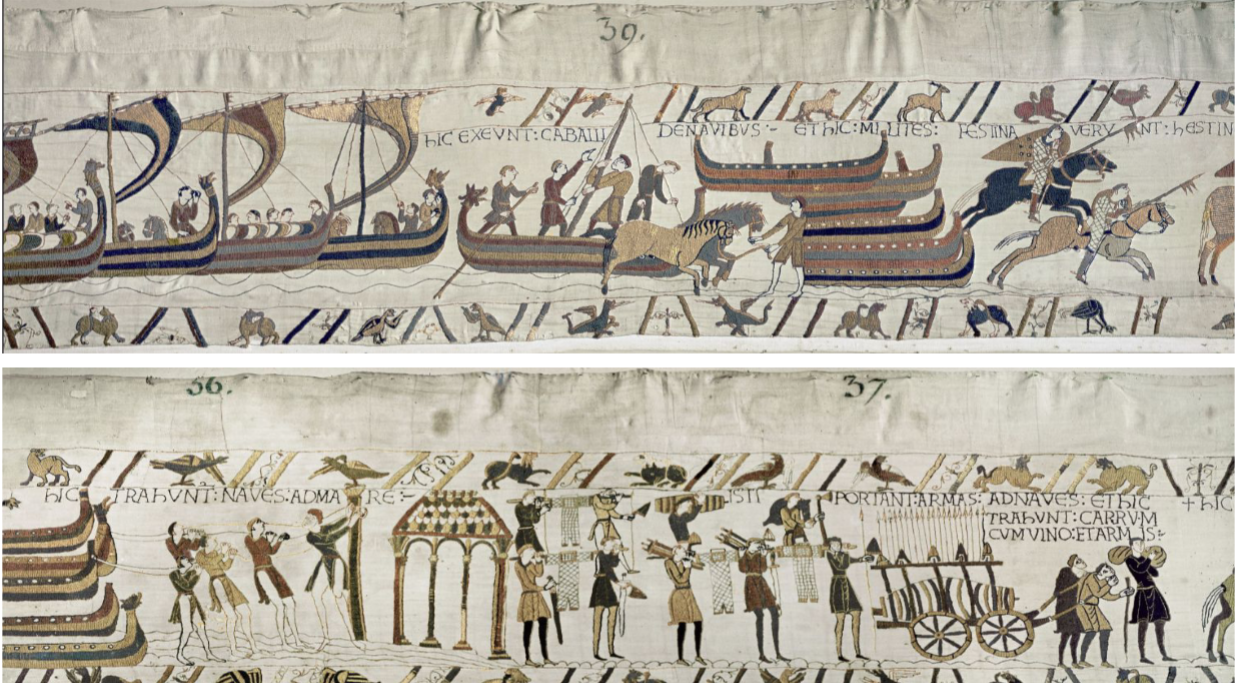 39.
hIC EXEVNT:CABALLI DENAVIBVS:- EThIC:MILITES: FESTINA VERVNT:hESTIN
36. 37.
hIC TRAhVNT:NAVES:ADMA RE:- ISTI PORTANT:ARMAS: ADNAVES: EThIC +hIC
TRAhVNT:CARRVM
CVMVINO:ETARMIS:-